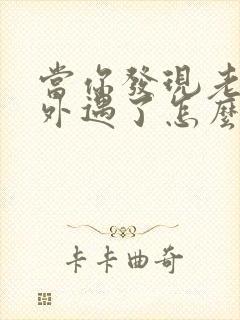 當你發現老
外遇了怎麼
卡卡曲奇